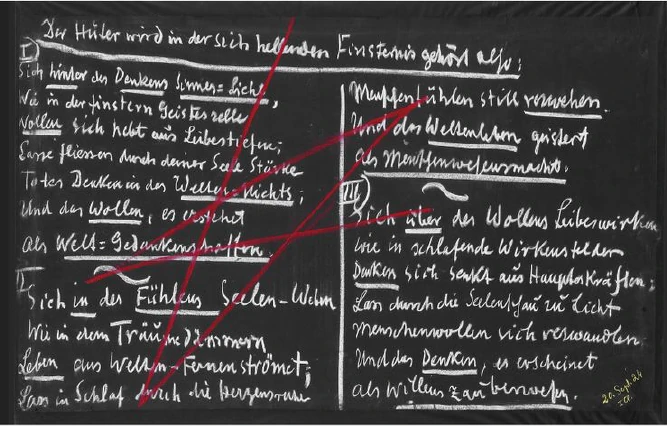 Der Hüter wird in der sich hellenden Finsternis gehört also:
I)
Sieh hinter des Denkens Sinnes=Licht,
Wie in der finstern Geisteszelle
Wollen sich hebt aus Leibestiefen;
Lasse fliessen durch deiner Seele Stärke
Totes Denken in das Welten=Nichts;
Und das Wollen, es erstehet
als Welt=Gedankenschaffen.
II
Sieh in des Fühlens Seelen-Weben
Wie in dem Träumedämmern
Leben aus Welten-Fernen strömet;
Lass in Schlaf durch die Herzensruhe
Menschenfühlen still verwehen.
Und das Weltenleben geistert
als Menschenwesensmacht.
III)
Sieh über des Wollens Leibeswirken
wie in schlafende Wirkensfelder
Denken sich senkt aus Haupteskräften;
Lass durch die Seelenschau zu Licht
Menschenwollen sich verwandeln
Und das Denken, es erscheinet
als Willenszauberwesen.
20. Sept 24